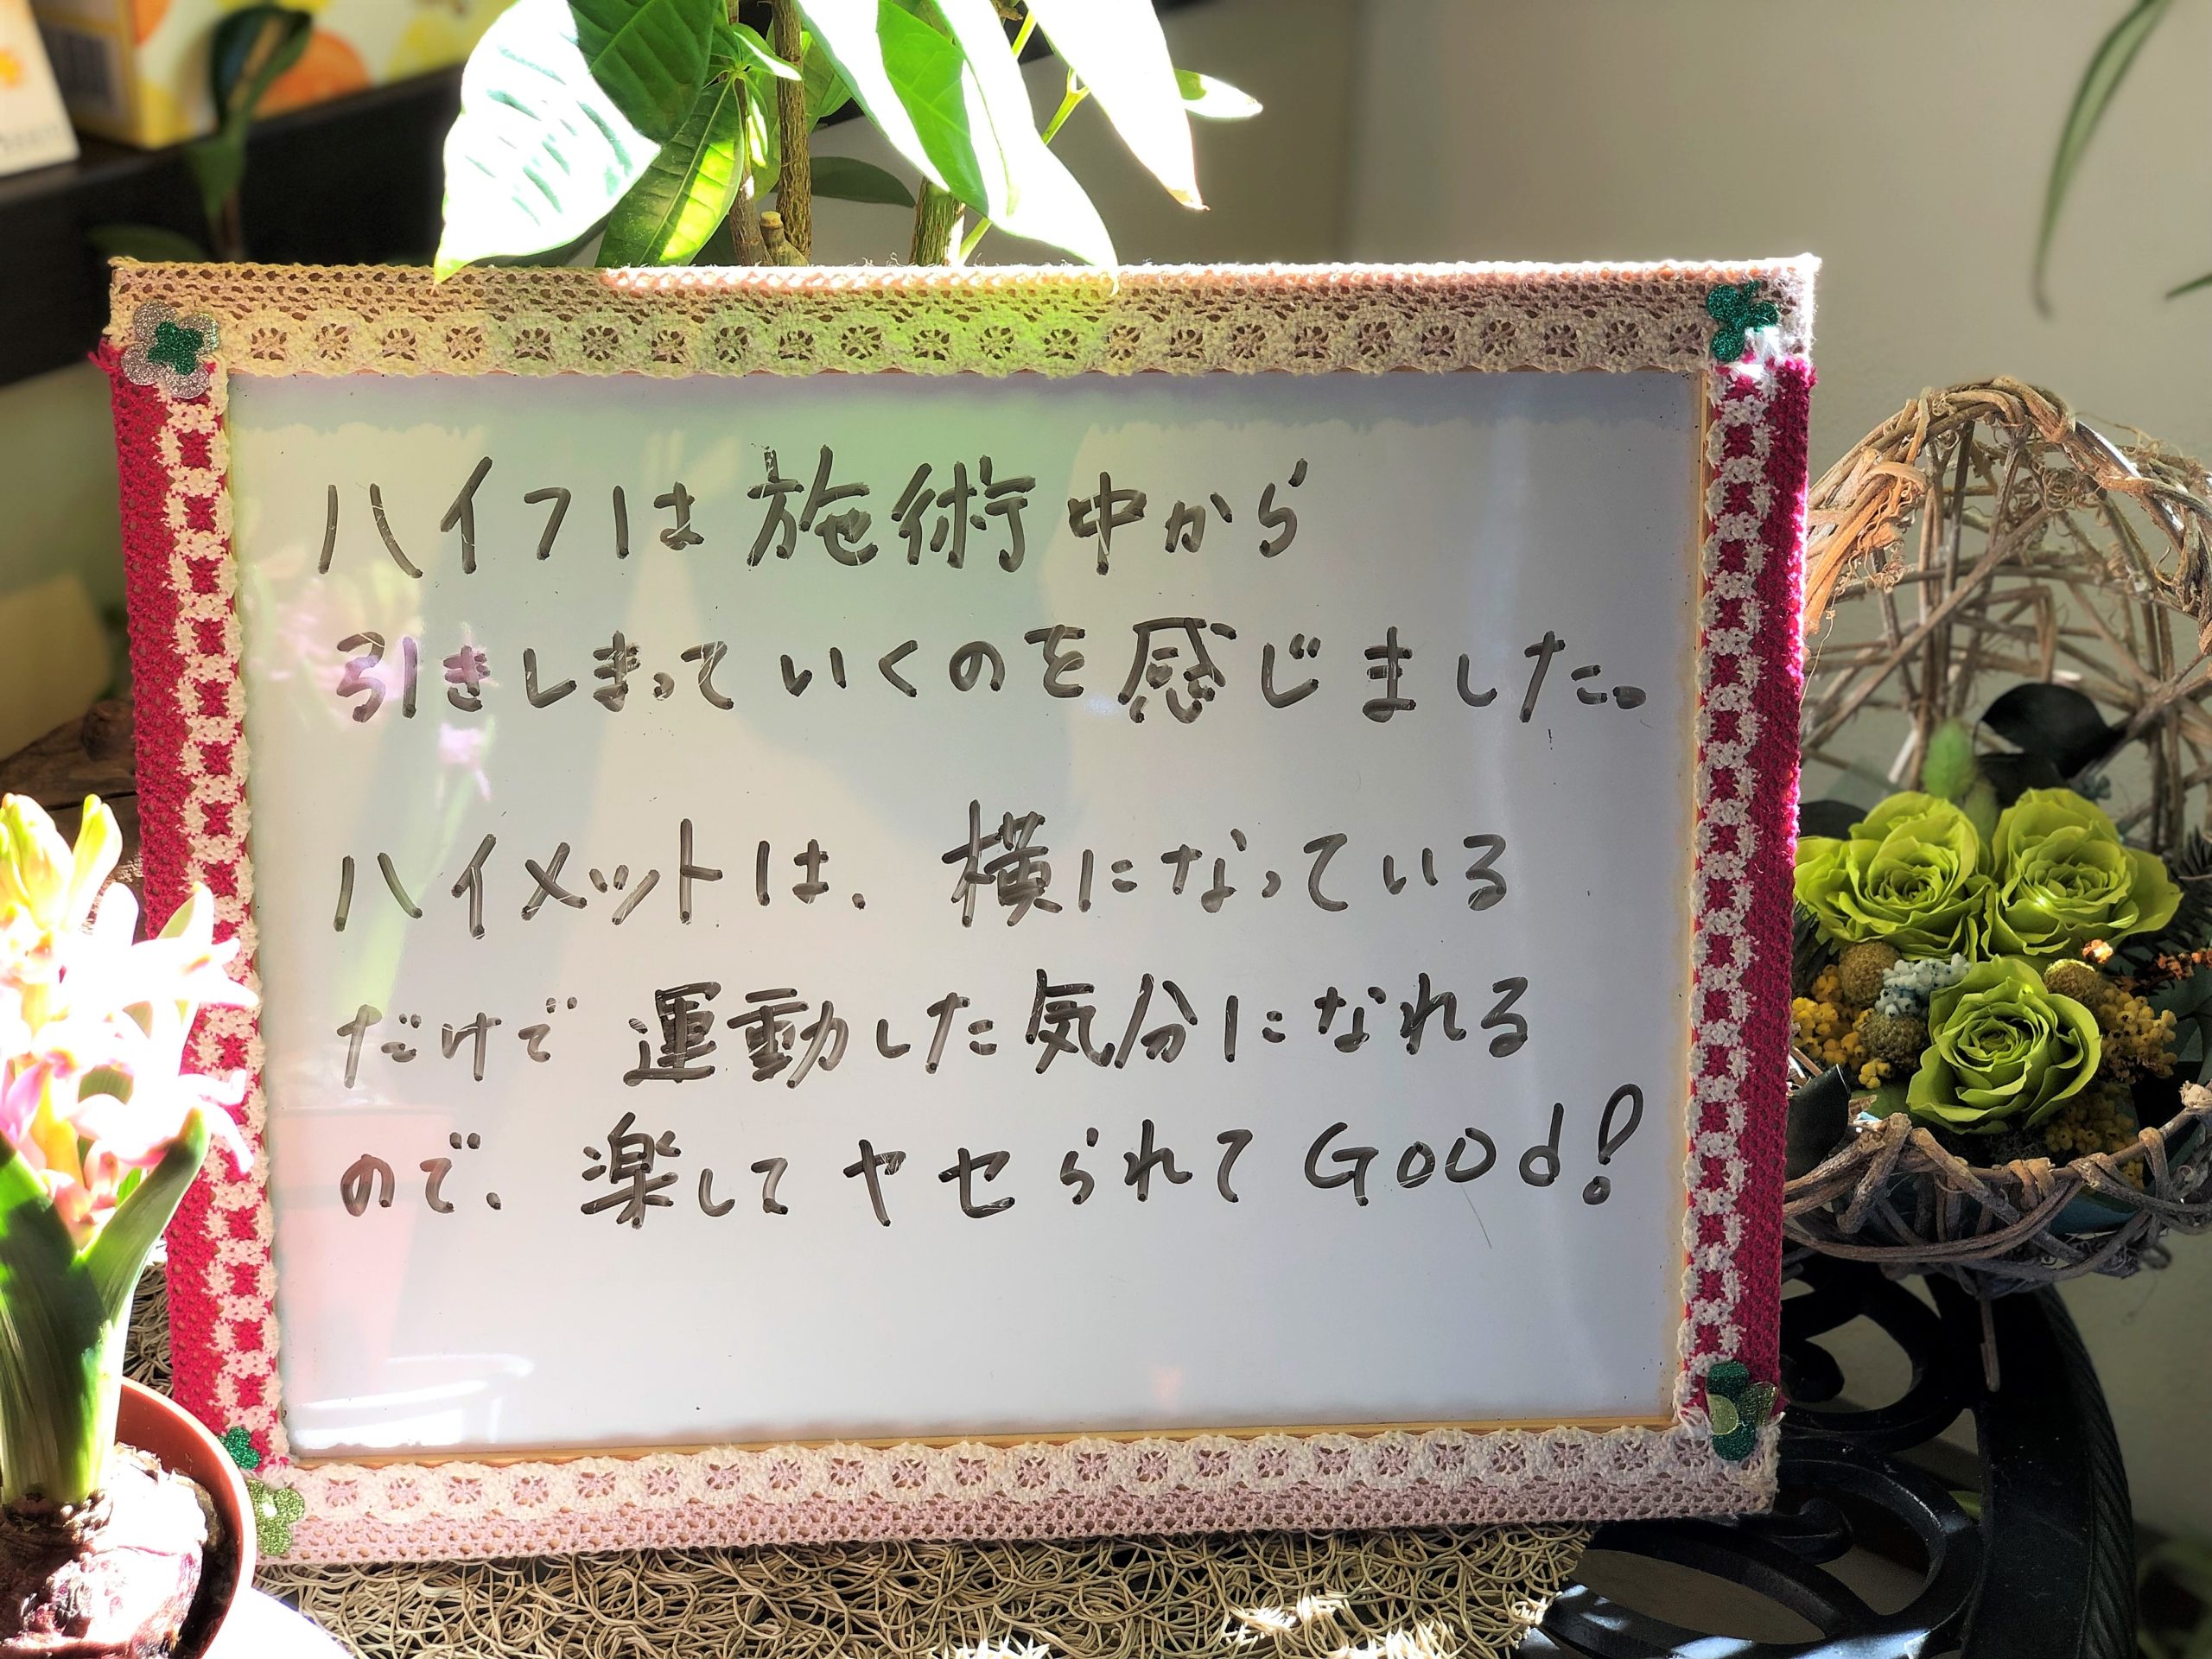 ハイフは施術中から
引きしまっていくのを感じました。
ハイメットは、横になっている
だけで運動した気分になれる
ので、楽してヤセられてGood!